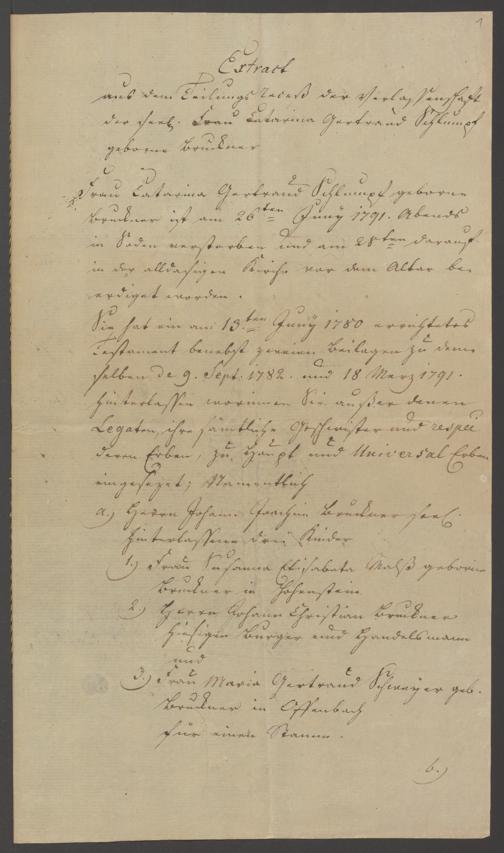 1
Extract
aus dem Teilungs Recess der Verlassenschaft
der seel. Frau Catarina Gertraud Schlumpf
geborne Bruckner
Frau Catarina Gertraud Schlumpf geborne
Bruckner ist am 26ten Junÿ 1791. Abends
in Soden verstorben und am 28ten darauf
in der alldasigen Kirche vor dem Altar be
erdiget worden.
Sie hat ein am 13ten Junÿ 1780 errichtetes
Testament benebst zweien Beilagen zu dem
selben de 9. Sept. 1782. und 18 Merz 1791.
hinterlassen worinnen Sie außer denen
Legaten, ihre sämtliche Geschwister und respec
deren Erben, zu Haupt und Universal Erben
eingesezet; Namentlich
a.) Herrn Johann Joachim Bruckner seel.
hinterlassene drei Kinder
1.) Frau Susanna Elisabeta geborne
Bruckner in Hohenstein
2.) Herrn Johann Christian Bruckner
hiesigen Burger und Handelsmann
und
3.) Frau Maria Gertraud Schweÿer geb.
Bruckner in Offenbach
für einen Stamm.
b.)